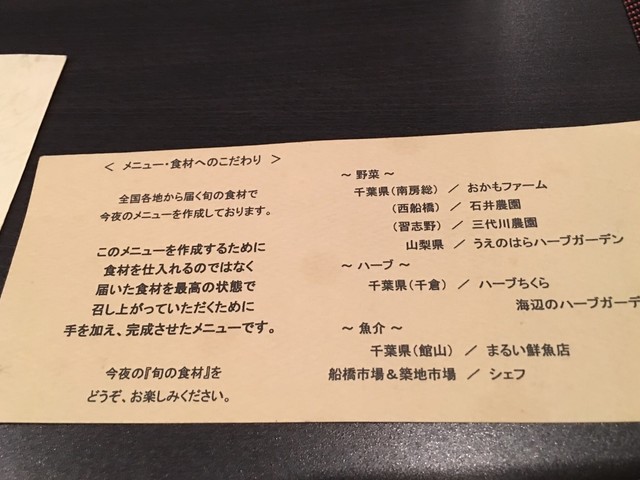 < メニュー・食材へのこだわり >
全国各地から届く旬の食材で
今夜のメニューを作成しております。
このメニューを作成するために
食材を仕入れるのではなく
届いた食材を最高の状態で
召し上がっていただくために
手を加え、完成させたメニューです。
今夜の『旬の食材』を
どうぞ、お楽しみください。
~ 野菜 ~
千葉県(南房総) / おかもファーム
(西船橋) / 石井農園
(習志野) / 三代川農園
山梨県 / うえのはらハーブガーデン
~ ハーブ ~
千葉県(千倉) / ハーブちくら
海辺のハーブガーデ
~ 魚介 ~
千葉県(館山) / まるい鮮魚店
船橋市場&築地市場 / シェフ